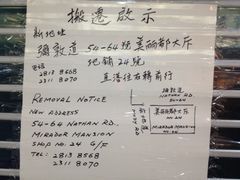 搬遷啟示
新地址
彌敦道 54-64號 美麗都大厦
地鋪24號
電話
2813 8568
2311 8070
直落往右轉前行
REMOVAL NOTICE
NEW ADDRESS
54-64 NATHAN RD.
MIRADOR MANSION
SHOP NO. 24 G/F
TEL: 2813 8568
2311 8070
彌敦道
NATHAN RD.
54-64
美麗都大厦
NO. 24
MIRADOR MANSION
NO. 24